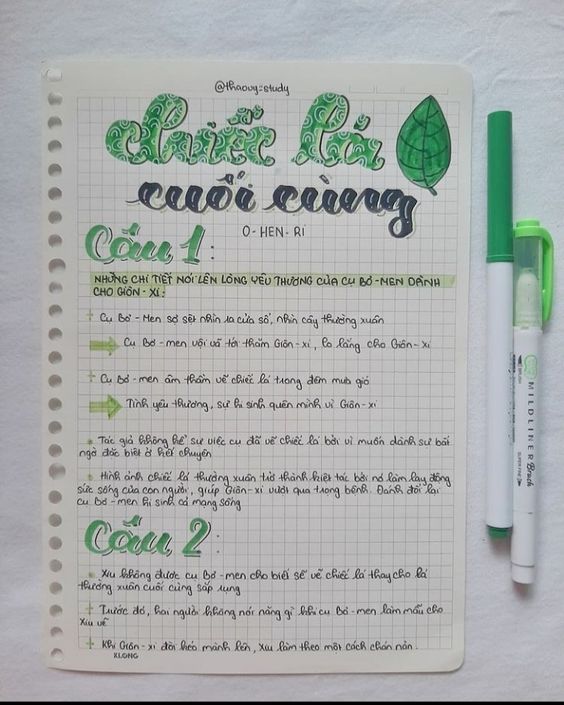 @thaovy-study
chiếc lá
cuối cùng
O-HEN-RI
Câu 1:
NHỮNG CHI TIẾT NÓI LÊN LÒNG YÊU THƯƠNG CỦA CỤ BƠ-MEN DÀNH
CHO GIÔN-XI:
+ Cụ Bơ-Men sợ sệt nhìn ra cửa sổ, nhìn cây thường xuân
Cụ Bơ-men vội vã tới thăm Giôn-xi, lo lắng cho Giôn-xi
+ Cụ Bơ-men âm thầm vẽ chiếc lá trong đêm mưa gió
Tình yêu thương, sự hi sinh quên mình vì Giôn-xi
Tác giả không kể sự việc cụ đã vẽ chiếc lá bởi vì muốn dành sự bất
ngờ đặc biệt ở kết chuyện
Hình ảnh chiếc lá thường xuân trở thành kiệt tác bởi nó làm lay động
sức sống của con người, giúp Giôn-xi vượt qua trong bệnh. Đánh đổi lại
cụ Bơ-men hi sinh cả mạng sống
Câu 2:
Xiu không được cụ Bơ-men cho biết sẽ vẽ chiếc lá thay cho lá
thường xuân cuối cùng sắp rụng
+ Trước đó, hai người không nói năng gì khi cụ Bơ-men làm mẫu cho
Xiu vẽ
+ Khi Giôn-xi đòi kéo mành lên, Xiu làm theo một cách chán nản.
XLONG
MILDLINER Brush
BRUSH
SUPER FINE